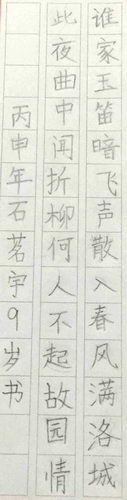 谁家玉笛暗飞声散入春风满洛城
此夜曲中闻折柳何人不起故园情
丙申年石茗宇9岁书